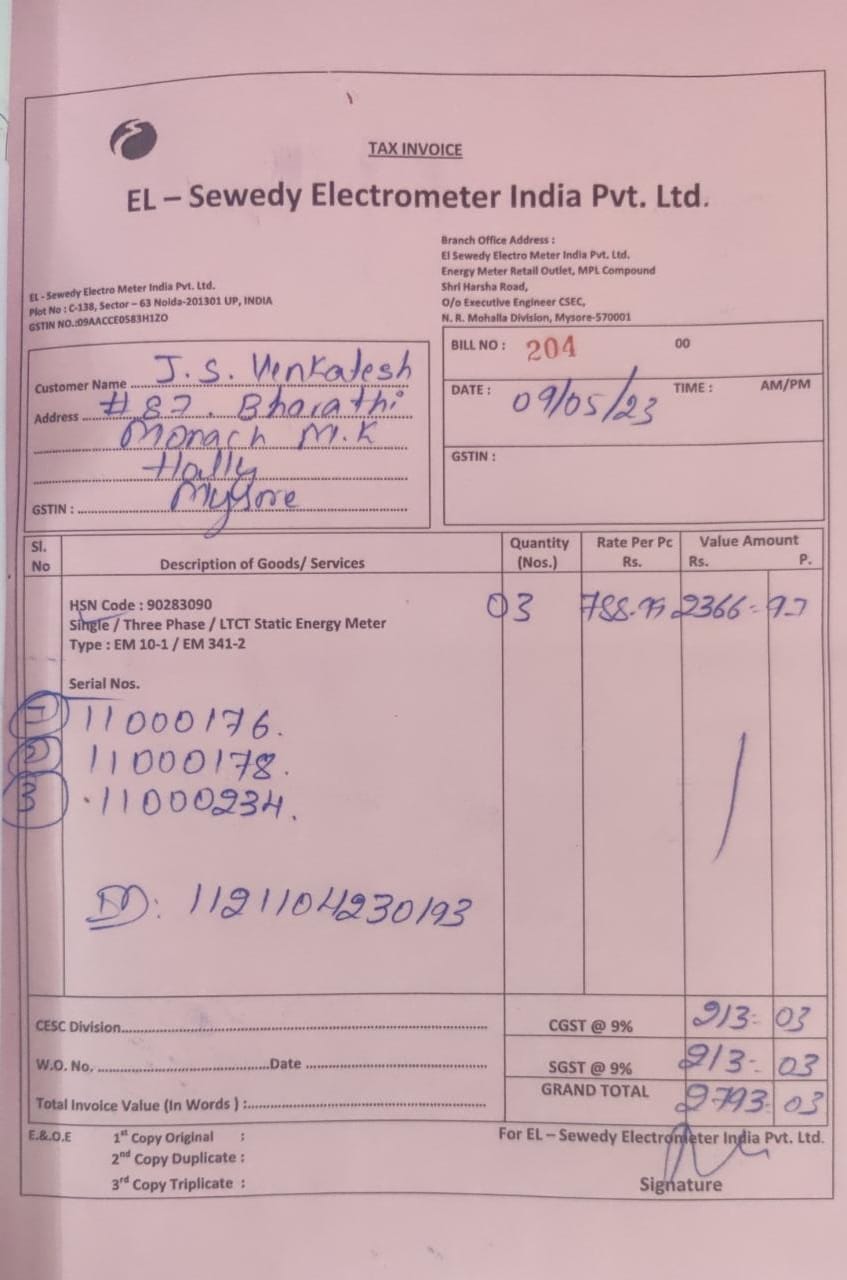 TAX INVOICE
EL – Sewedy Electrometer India Pvt. Ltd.
EL - Sewedy Electro Meter India Pvt. Ltd.
Plot No : C-138, Sector – 63 Noida-201301 UP, INDIA
GSTIN NO.:09AACCE0583H1ZO
Branch Office Address :
El Sewedy Electro Meter India Pvt. Ltd.
Energy Meter Retail Outlet, MPL Compound
Shri Harsha Road,
O/o Executive Engineer CSEC,
N. R. Mohalla Division, Mysore-570001
Customer Name J.S. Venkatesh
Address #87. Bharathi
Monach M.K
Hally
GSTIN : Mysore
BILL NO : 204 00
DATE : 09/05/23 TIME : AM/PM
GSTIN :
Sl. No Description of Goods/ Services Quantity (Nos.) Rate Per Pc Rs. Value Amount Rs. P.
HSN Code : 90283090 03 788.95 2366=97
Single / Three Phase / LTCT Static Energy Meter
Type : EM 10-1 / EM 341-2
Serial Nos.
1 11000176.
2 11000178.
3 11000234.
1121104230193
CESC Division CGST @ 9% 213=03
W.O. No. Date SGST @ 9% 213=03
GRAND TOTAL 2793=03
Total Invoice Value (In Words ) :
E.&.O.E 1st Copy Original : For EL – Sewedy Electrometer India Pvt. Ltd.
2nd Copy Duplicate :
3rd Copy Triplicate : Signature